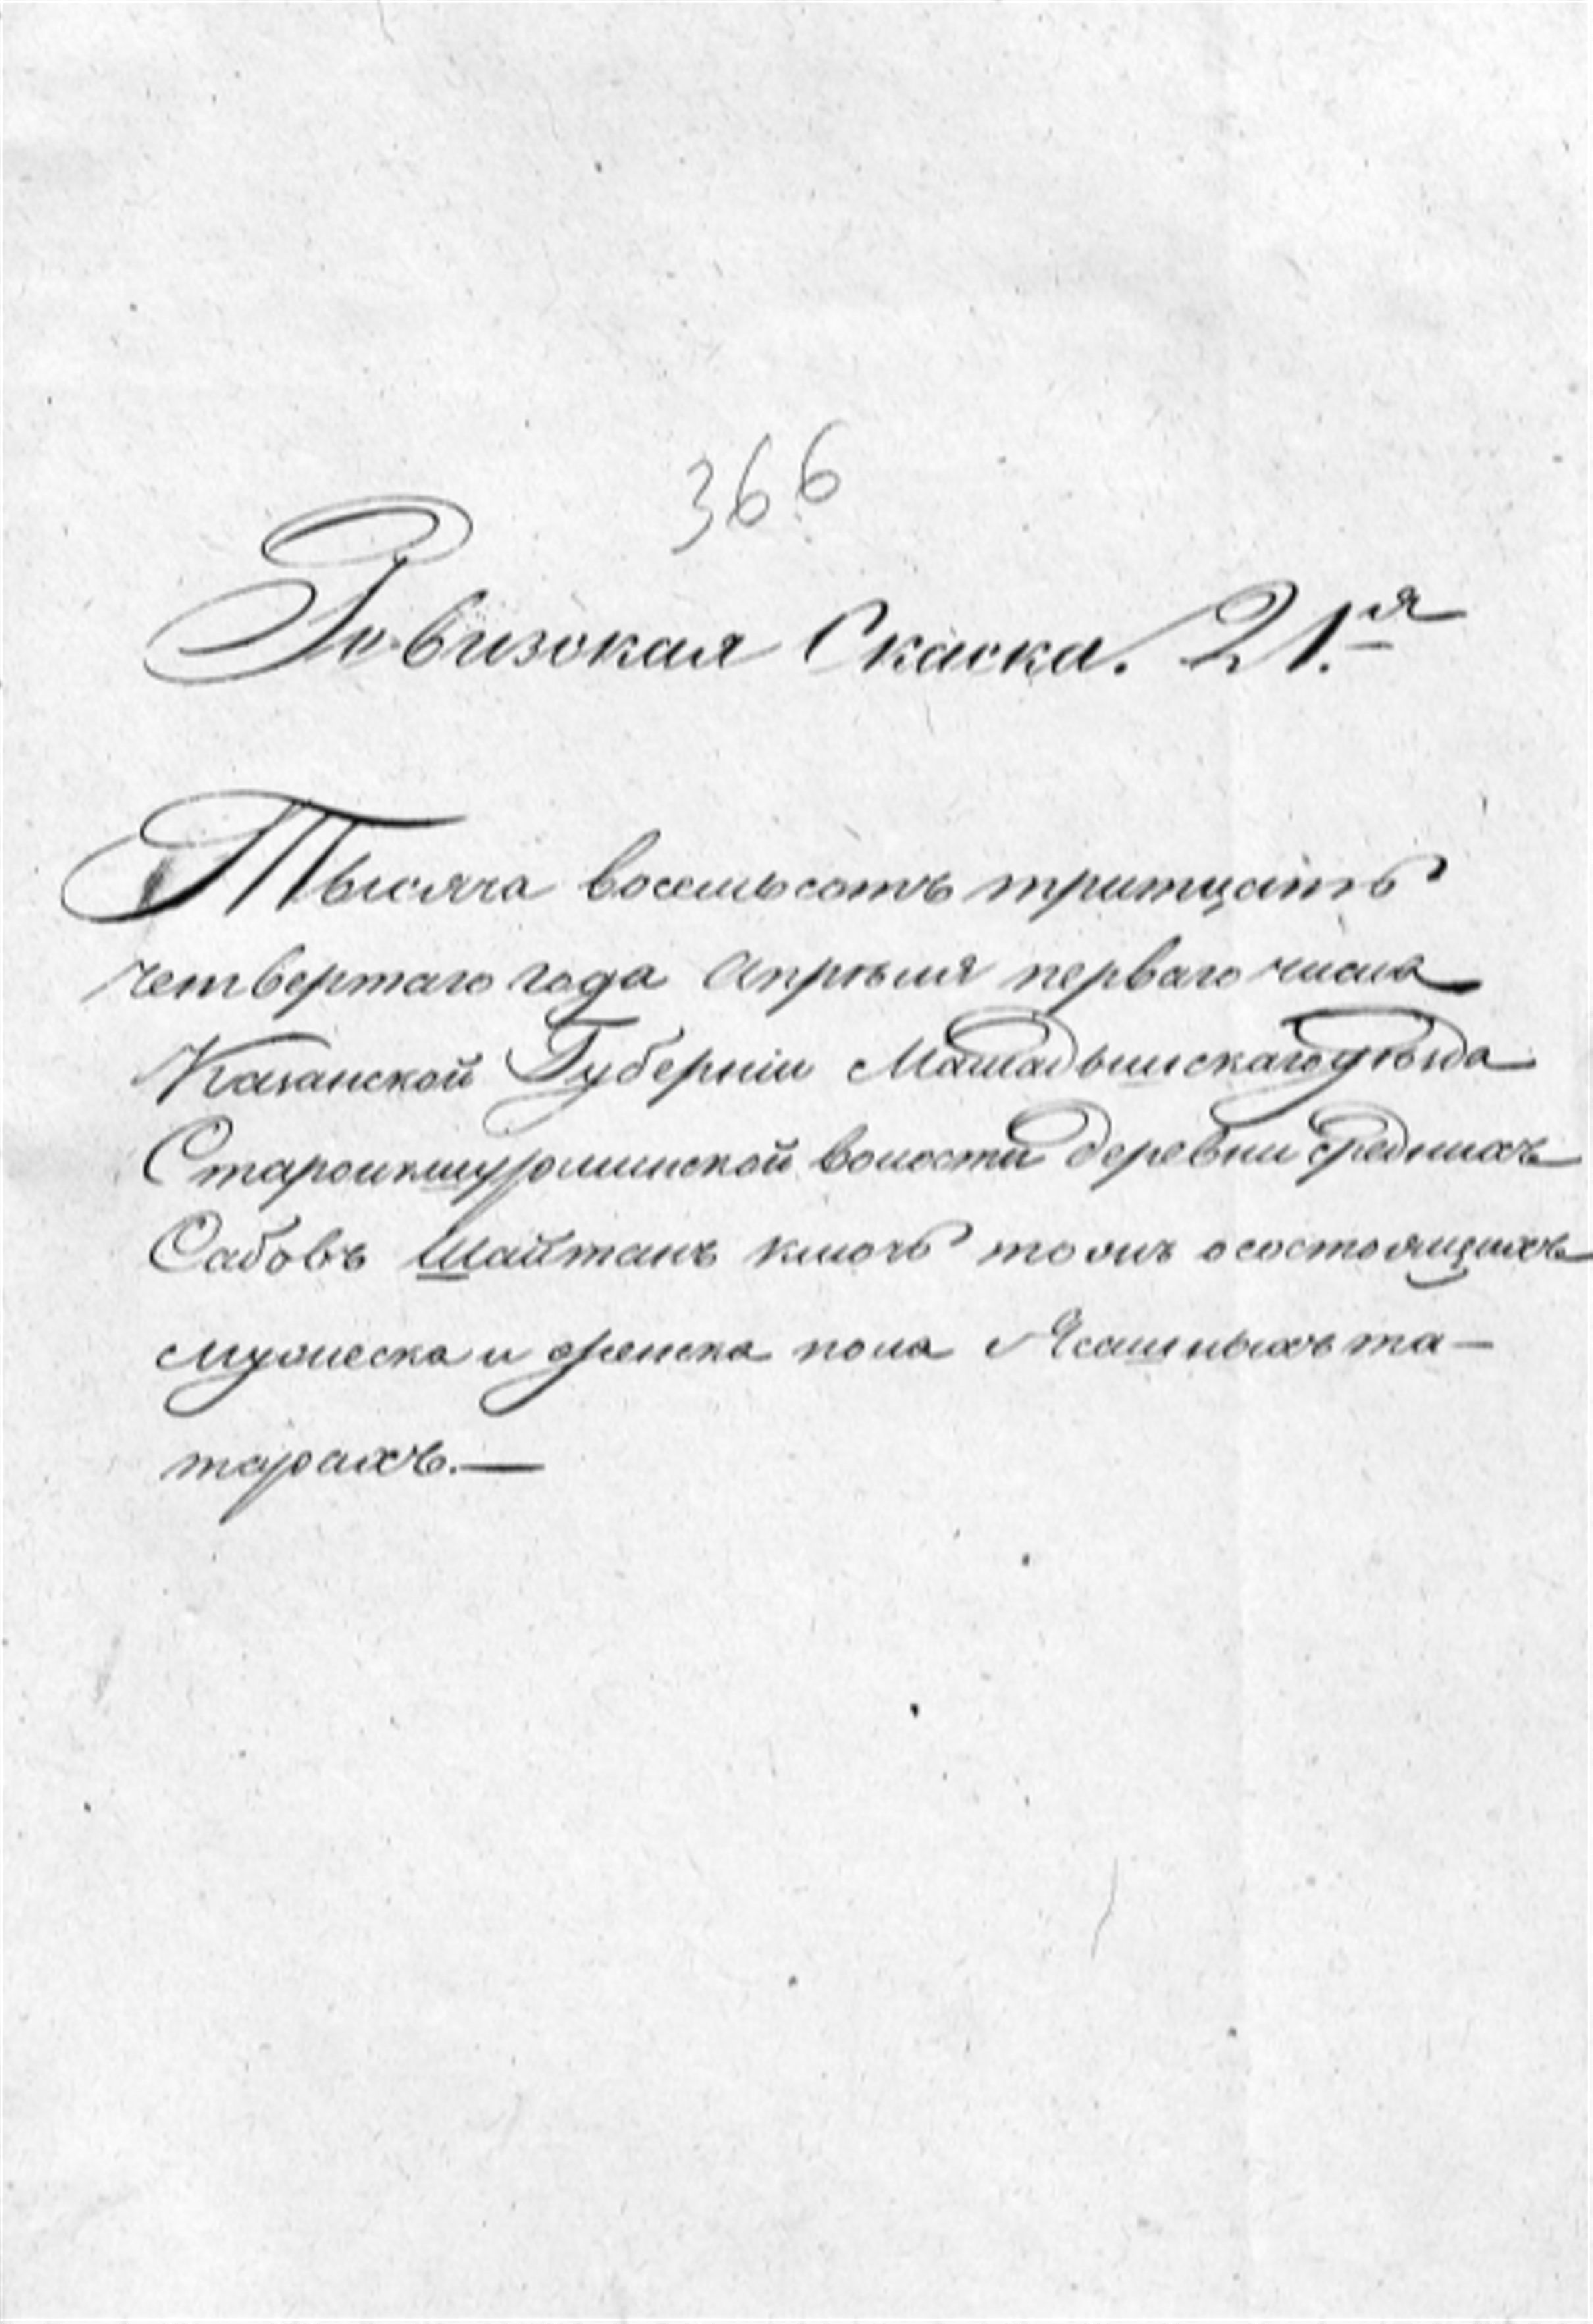 366
Ревизская Скаска. 21.я
Тысяча восемьсотъ тритцать
четвертаго года Апрѣля перваго числа
Казанской Губерніи Мамадышскаго уѣзда
Староикшурминской волости деревни Среднихъ
Сабовъ Шайтанъ ключь тожъ о состоящихъ
мужеска и женска пола Ясашныхъ та-
тарахъ.—